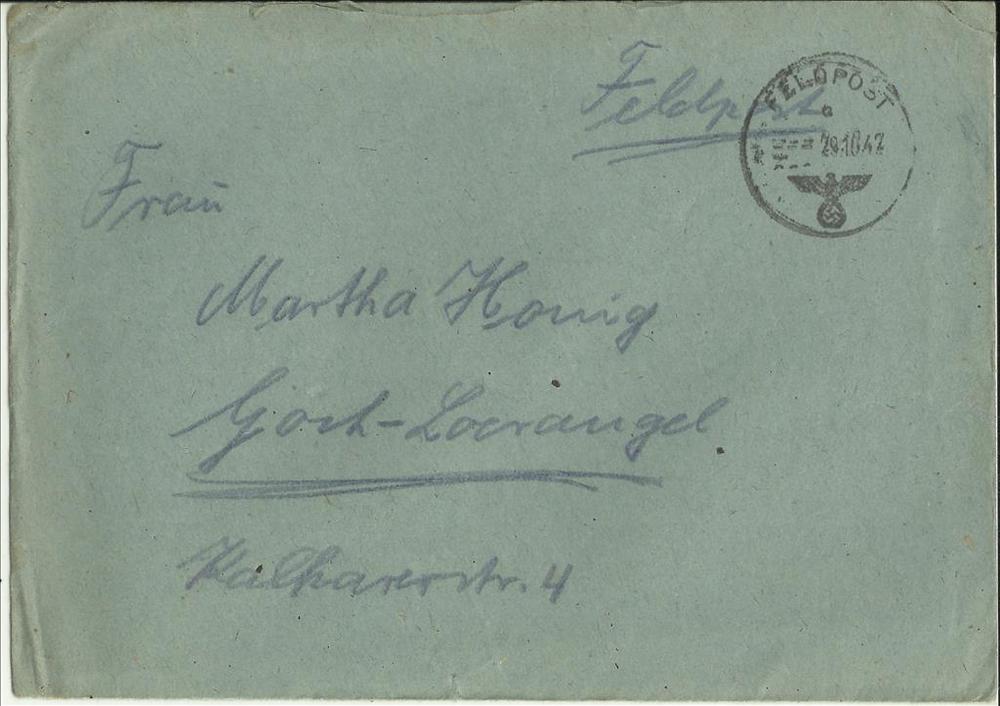 Feldpost
FELDPOST
a
29.10.42
Frau
Martha Honig
Goch-Loerangel
Kalkarerstr. 4